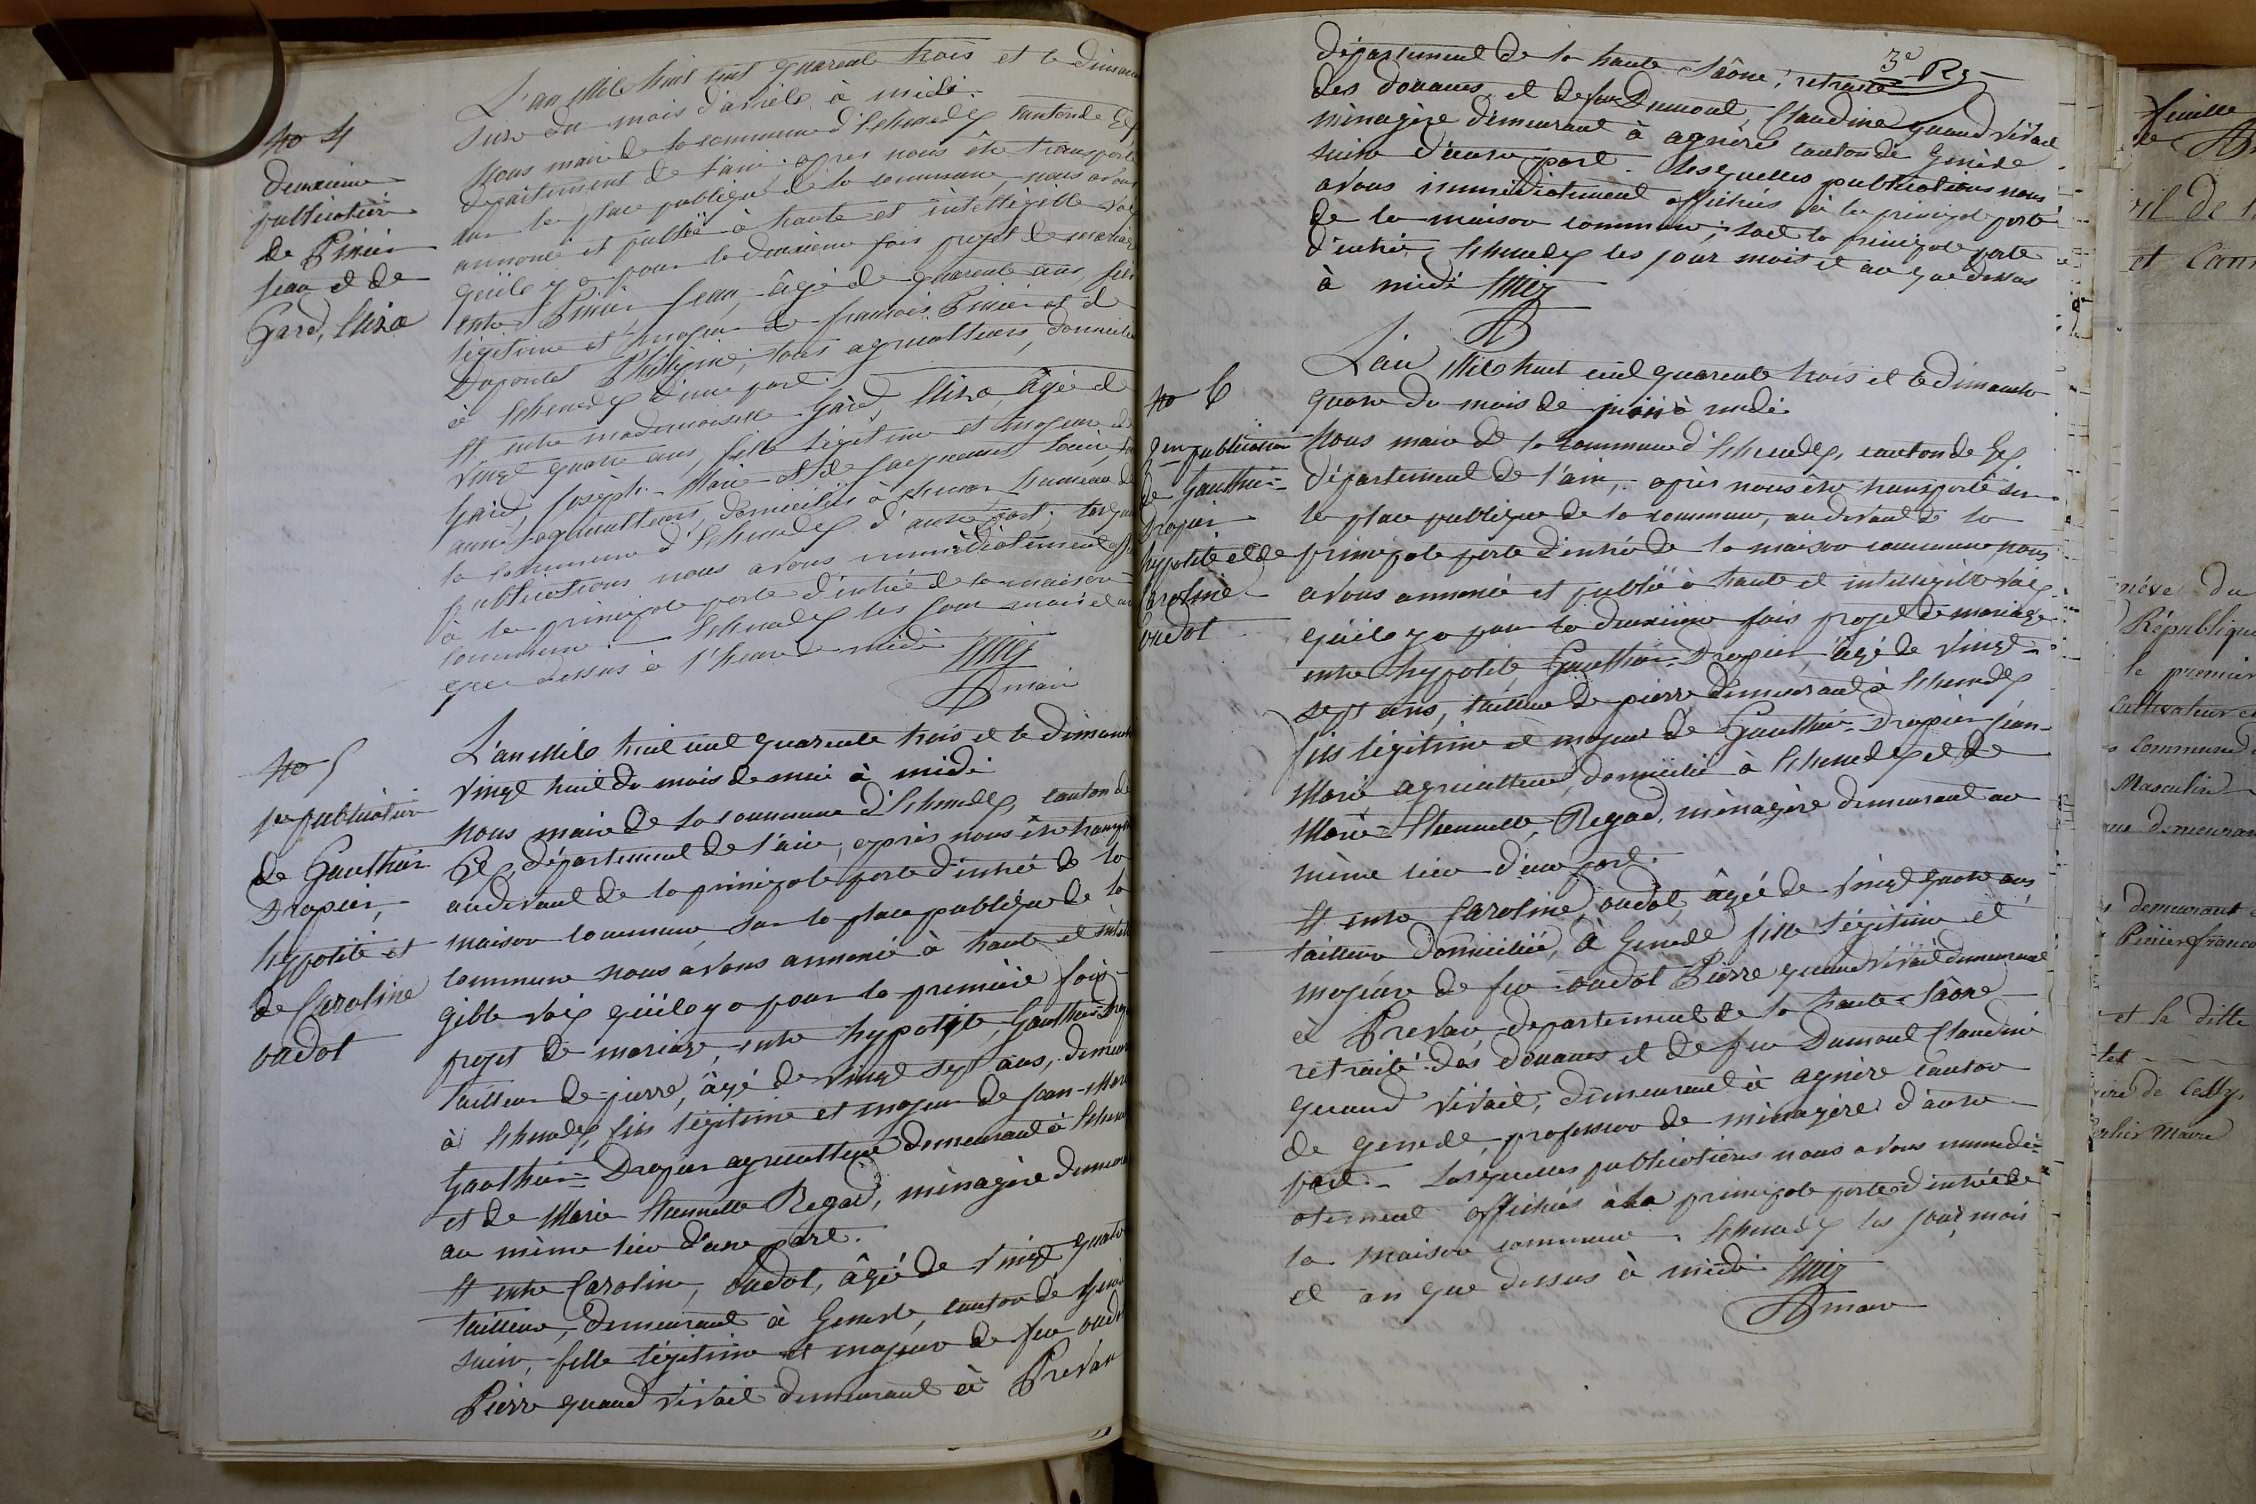 No 4
deuxième
publication
de Périer
Jean et de
Gard, Eliza
L'an Mile huit cent quarente trois et le dimanc
size du mois d'avrile à midi.
Nous maire de la commune d'Echenedex canton de Gex
département de l'ain; apres nous être transporté
sur la place publique de la commune, nous avons
annoncé et publiée à haute et intelligible voix
qu'ile y a pour la deuxième fois projet de mariage
entre Périer Jean, âgé de quarente ans, fils
légitime et majeur de francois Périer et de
Dupontet Philipine; tous agriculteurs, domicilié
à Echenedex d'une part.
Et entre mademoiselle Gard, Eliza, âgée de
vingt quatre ans, fille légitime et majeure de
Gard, Joseph-Marie et de
aussi agriculteurs, domiciliés à hameau de
la commune d'Echenedex d'autre part; lesquel
publications nous avons immédiatement aff
à la principale porte d'entrée de la maison
commune. Echenedex les jour mois et an
que dessus à l'heure de midi
maire
No 5
1re publication
de Gauthier
Drapier,
hypolite et
de Caroline
oudot
L'an Mile huit cent quarente trois et le dimanche
vingt huit du mois de mai à midi
Nous maire de la commune d'Echenedex, canton de
Gex, département de l'ain, après nous être transpor
au devant de la principale porte d'entrée de la
maison commune, sur la place publique de la
commune nous avons annoncé à haute et intelli
gible voix qu'ile y a pour la premiere fois
projet de mariage, entre hypolyte, Gauthier-Drap
tailleur de pierre, âgé de vingt sept ans, demeur
à Echenedex, fils légitime et majeur de Jean-Marie
Gauthier-Drapier agriculteur demeurant à Echene
et de Marie Etiennette Regad, ménagère demeura
au même lieu d'une part.
Et entre Caroline, oudot, âgée de vingt quatre
tailleuse, demeurant à Genève, canton de Genè
suisse, fille légitime et majeure de feu oudot
Pierre quand vivait demeurant à Prevan
3e Rg
département de la haute Saône, retraité
des douanes et de feu Dumont, Claudine quand vivait
ménagère demeurant à agnère canton de Genève
suisse d'autre part. Lesquelles publications nous
avons immédiatement affichées à la principale porte
de la maison commune, soit la principale porte
d'entrée, Echenedex les jour mois et an que dessus
à midi
No 6
2em publication
de Gauthier-
Drapier
hypolite et de
Caroline
oudot
L'an Mile huit cent quarente trois et le dimanche
quatre du mois de juin à midi.
Nous maire de la commune d'Echenedex, canton de Gex
département de l'ain, après nous être transporté sur
la place publique de la commune, au devant de la
principale porte d'entrée de la maison commune nous
avons annoncé et publié à haute et intelligible voix
qu'ile y a pour la deuxième fois projet de mariage
entre hypolite, Gauthier-Drapier, âgé de vingt
sept ans, tailleur de pierre demeurant à Echenedex
fils légitime et majeur de Gauthier-Drapier Jean-
Marie, agriculteur, domicilié à Echenedex et de
Marie-Etiennette, Regad, ménagère demeurant au
même lieu d'une part.
Et entre Caroline, oudot, âgée de vingt quatre ans
tailleuse domiciliée, à Genède fille légitime et
majeure de feu oudot Pierre quand vivait demeurant
à Prevan, département de la haute Saône
retraité des douanes et de feu Dumont Claudine
quand vivait, demeurant à agnère canton
de genede, profession de ménagère d'autre
part. Lesquelles publications nous avons immedi-
atement affichées à la principale porte d'entrée de
la maison commune. Echenedex les jour mois
et an que dessus à midi
maire
feuille
et
néve du
République
le premier
Cultivateur
commune
Masculin
demeurant
demeurant
Périer Franco
et la ditte
Maire